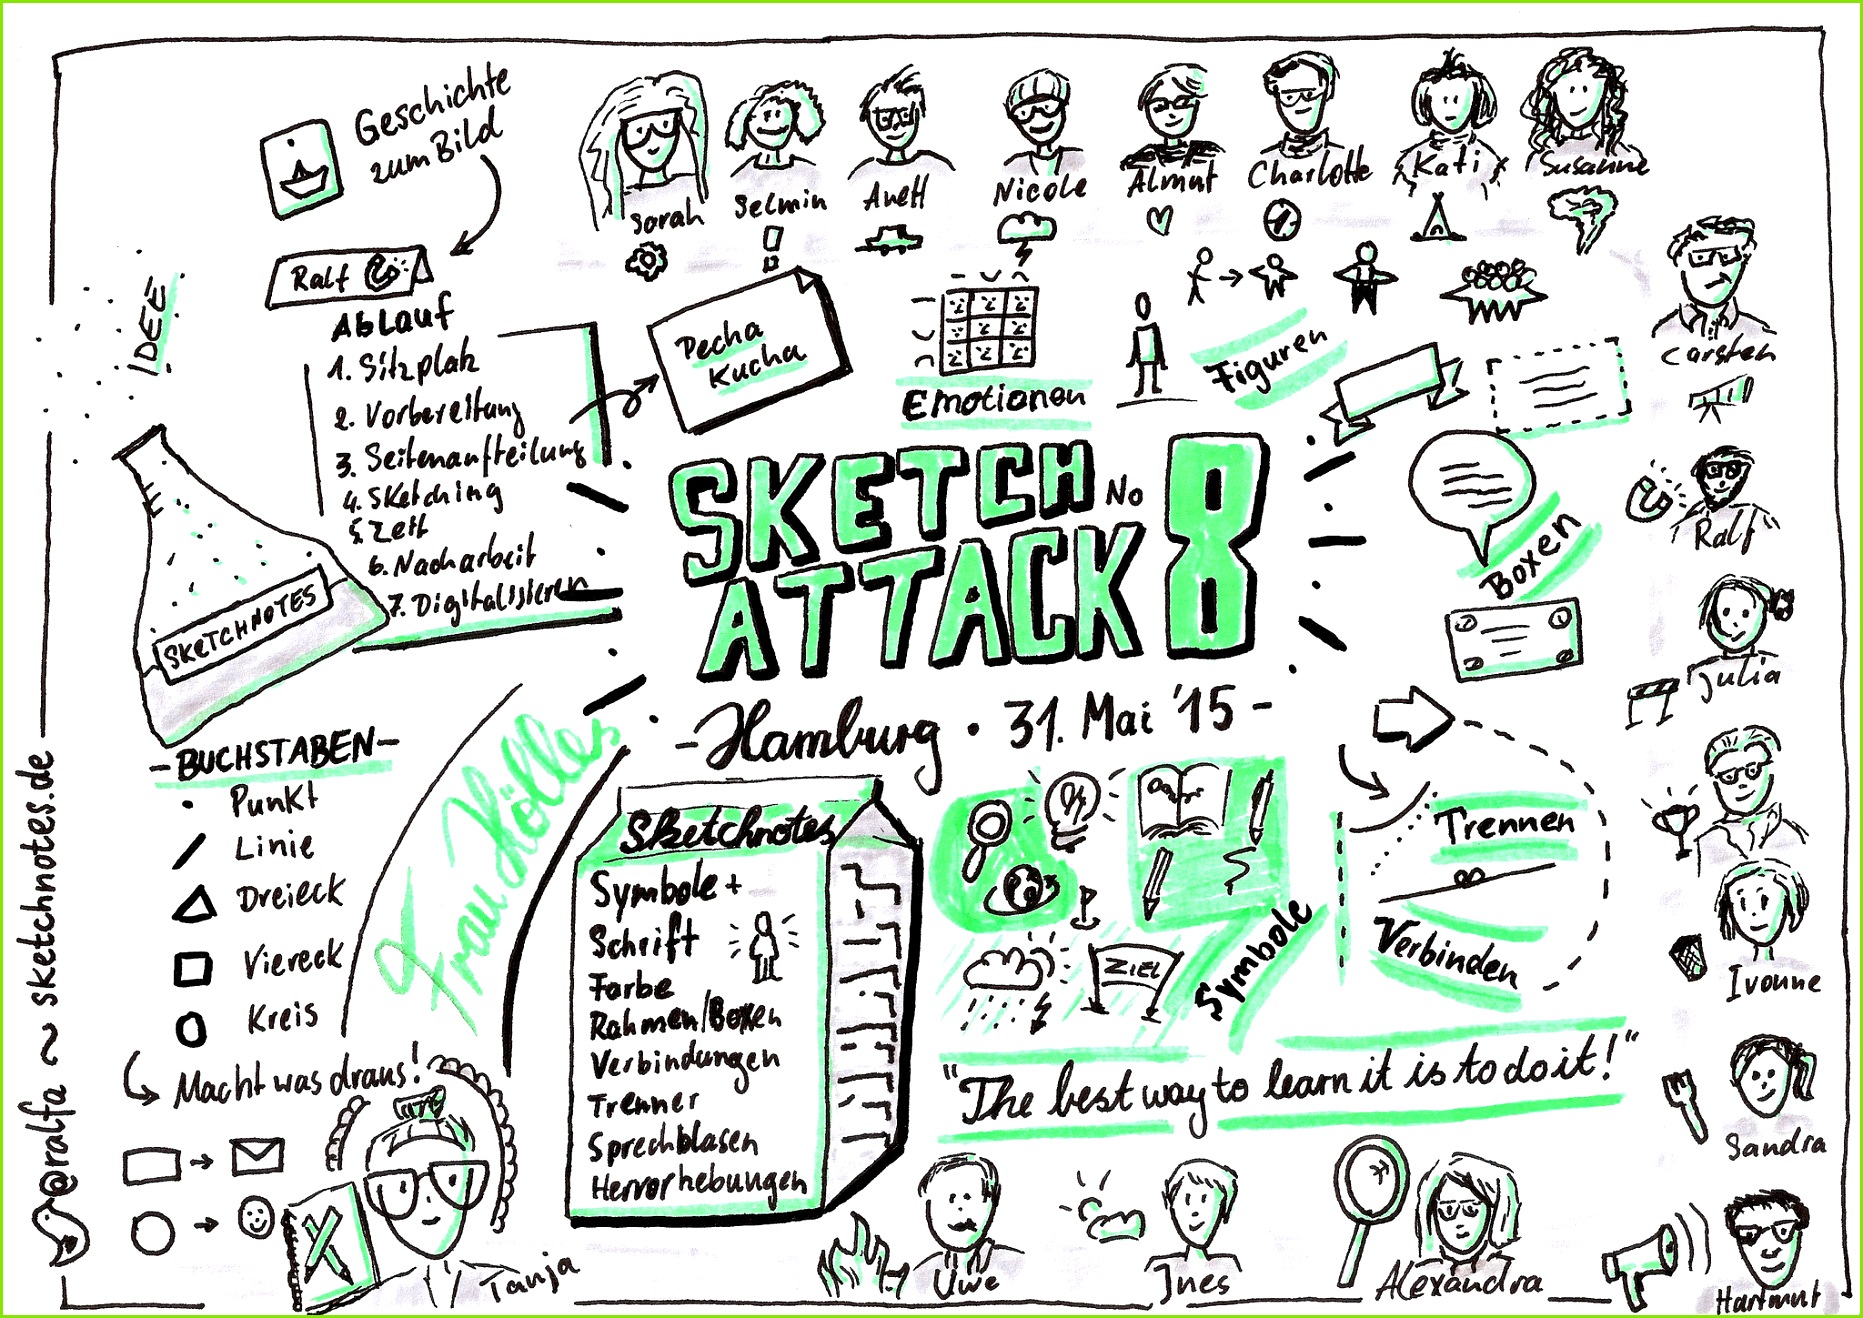 Geschichte
zum Bild
Ralf
IDEE
Ablauf
1. Sitzplatz
2. Vorbereitung
3. Seitenaufteilung
4. Sketching
5. Zeit
6. Nacharbeit
7. Digitalisieren
SKETCHNOTES
Pecha
Kucha
Sarah
Selmin
Anett
Nicole
Almut
Charlotte
Kati
Susanne
Emotionen
Figuren
Carsten
Ralf
Boxen
Julia
SKETCH No 8
ATTACK
- Hamburg · 31. Mai '15 -
- BUCHSTABEN -
Punkt
Linie
Dreieck
Viereck
Kreis
Macht was draus!
Frau Hölle
Tanja
Sketchnotes
Symbole +
Schrift
Farbe
Rahmen/Boxen
Verbindungen
Trenner
Sprechblasen
Hervorhebungen
ZIEL
Symbole
Trennen
Verbinden
"The best way to learn it is to do it!"
Ivonne
Sandra
Hartmut
Uwe
Ines
Alexandra
@ralfa ~ sketchnotes.de